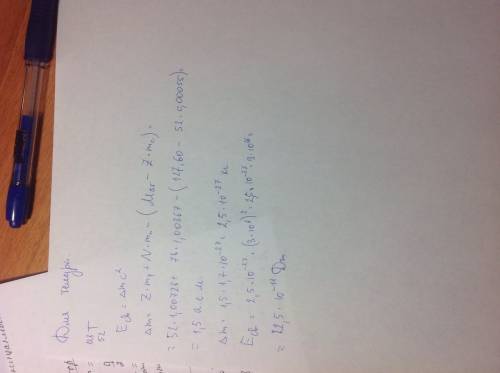 Для теллура
52
Eсв = Δmc²
Δm = Z·mp + N·mn − (Mат − Z·me) =
= 52·1,00728 + 76·1,00867 − (127,60 − 52·0,00055) =
= 1,5 а.е.м.
Δm = 1,5·1,7·10⁻²⁷ = 2,5·10⁻²⁷ кг
Eсв = 2,5·10⁻²⁷·(3·10⁸)² = 2,5·10⁻²⁷·9·10¹⁶ =
= 22,5·10⁻¹¹ Дж